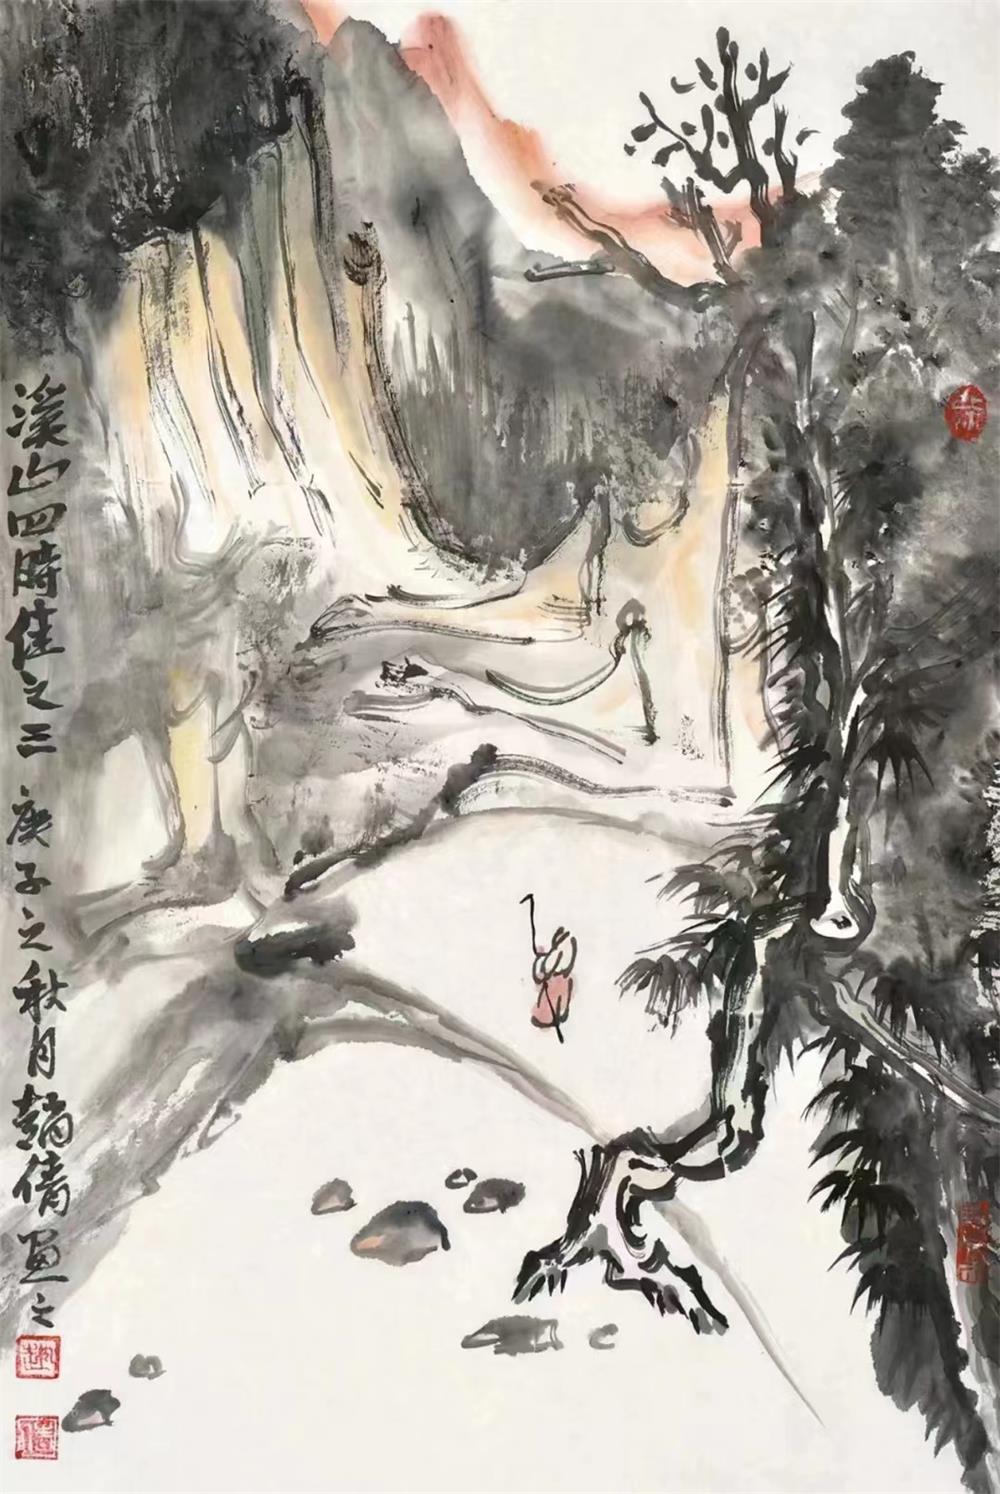 溪山四時佳之三 庚子之秋月 趙倩画之